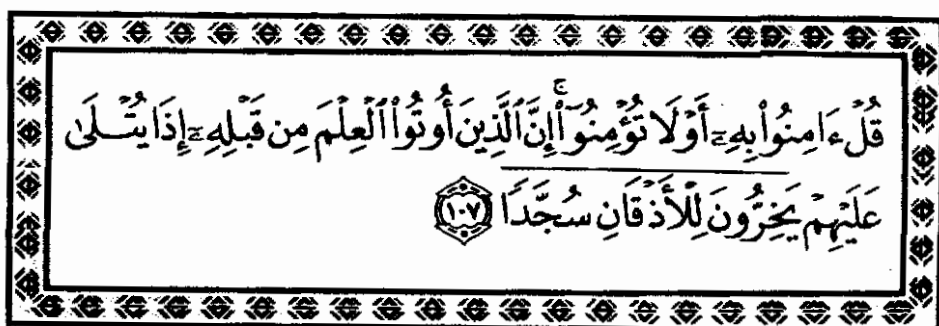 قُلْ ءَامِنُوا۟ بِهِۦٓ أَوْ لَا تُؤْمِنُوٓا۟ ۚ إِنَّ ٱلَّذِينَ أُوتُوا۟ ٱلْعِلْمَ مِن قَبْلِهِۦٓ إِذَا يُتْلَىٰ
عَلَيْهِمْ يَخِرُّونَ لِلْأَذْقَانِ سُجَّدًا ﴿١٠٧﴾